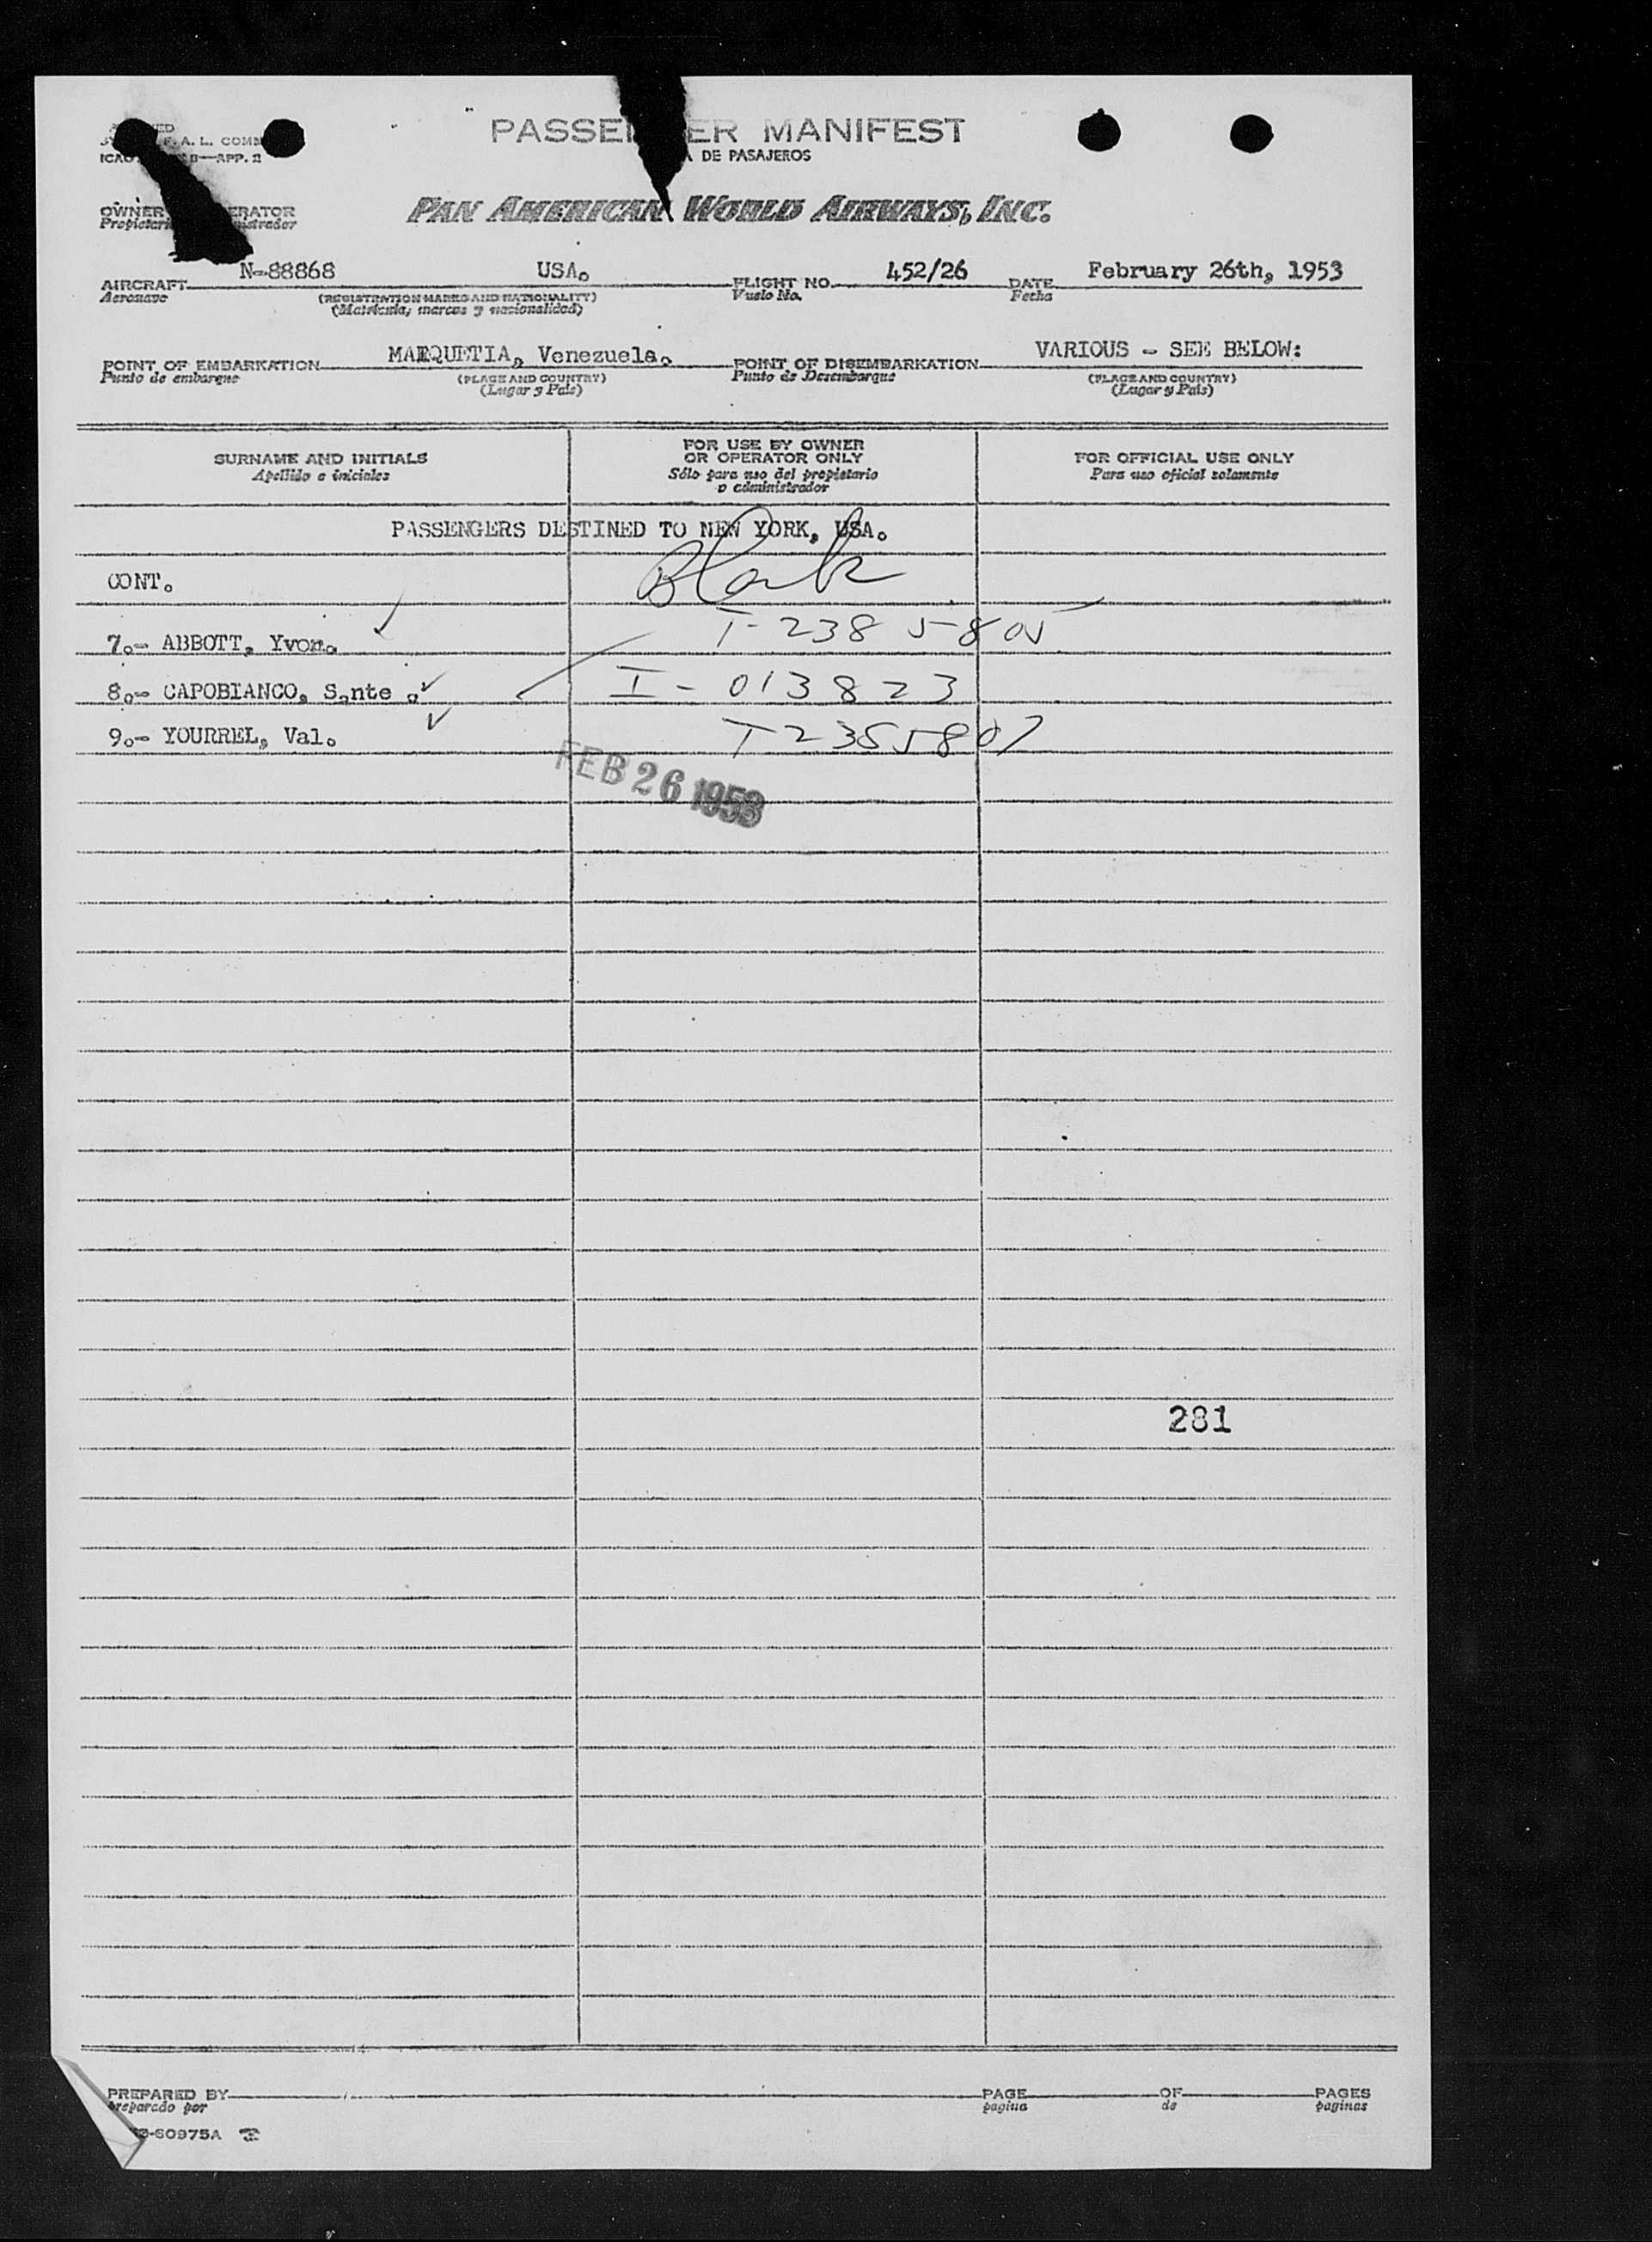 PASSEN ER MANIFEST
DE PASAJEROS
F. A. L. COMM
ICAO B—APP. 2
OWNER ERATOR
Propietari istrador
PAN AMERICAN WORLD AIRWAYS, INC.
N-88868 USA. 452/26 February 26th, 1953
AIRCRAFT FLIGHT NO. DATE
Aeronave (REGISTRATION MARKS AND NATIONALITY) Vuelo No. Fecha
(Matricula, marcas y nacionalidad)
MAIQUETIA, Venezuela. VARIOUS - SEE BELOW:
POINT OF EMBARKATION POINT OF DISEMBARKATION
Punto de embarque (PLACE AND COUNTRY) Punto de Desembarque (PLACE AND COUNTRY)
(Lugar y Pais) (Lugar y Pais)
SURNAME AND INITIALS FOR USE BY OWNER OR OPERATOR ONLY FOR OFFICIAL USE ONLY
Apellido e iniciales Sólo para uso del propietario o administrador Para uso oficial solamente
PASSENGERS DESTINED TO NEW YORK, USA.
CONT. Blank
7.- ABBOTT, Yvon. T-2385805
8.- CAPOBIANCO, Sante . I-013823
9.- YOURREL, Val. T2355807
FEB 26 1953
281
PREPARED BY PAGE OF PAGES
preparado por pagina de paginas
-60975A